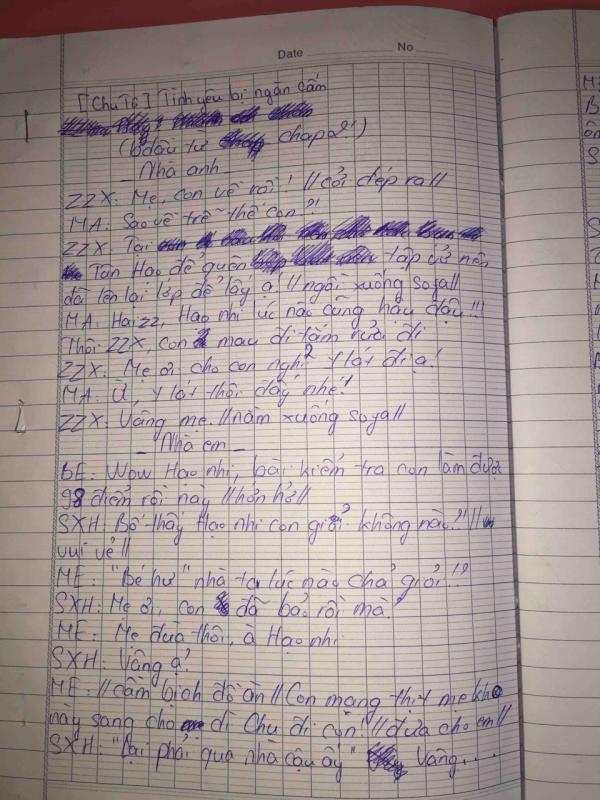 Date No
[Chu Tô] Tình yêu bị ngăn cấm
(bđầu từ chap 2!)
_ Nhà anh _
ZZX: Mẹ, con về rồi! //cởi dép ra//
MA: Sao về trễ thế con?!
ZZX: Tại
Tân Hạo để quên tập vở nên
đã lên lại lớp để lấy ạ! //ngồi xuống sofa//
MA: Haizz, Hạo nhi lúc nào cũng hậu đậu!!!
Thôi ZZX, con mau đi tắm rửa đi
ZZX: Mẹ ơi cho con nghỉ y lát đi ạ!
MA: Ừ, y lát thôi đấy nhé!
ZZX: Vâng mẹ. //nằm xuống sofa//
_ Nhà em _
BE: Wow Hạo nhi, bài kiểm tra con làm được
98 điểm rồi này //hớn hở//
SXH: Bố thấy Hạo nhi con giỏi không này?! //
vui vẻ//
ME: "Bé hư" nhà ta lúc nào chả giỏi!!
SXH: Mẹ ơi, con đã bảo rồi mà!
ME: Mẹ đùa thôi, à Hạo nhi
SXH: Vâng ạ!
ME: //cầm bịch đồ ăn// Con mang thịt mẹ kho
này sang cho dì Chu đi con! //đưa cho em//
SXH: "Lại phải qua nhà cậu ấy" Vâng....